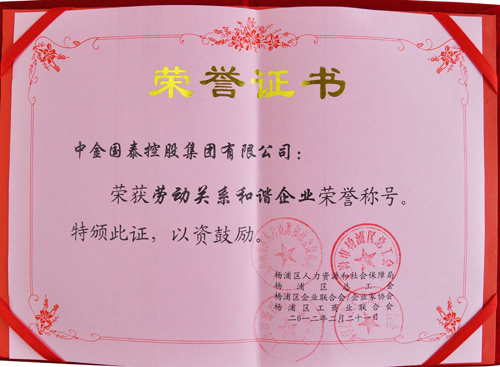 荣誉证书
中金国泰控股集团有限公司：
荣获劳动关系和谐企业荣誉称号。
特颁此证，以资鼓励。
杨浦区人力资源和社会保障局
杨浦区总工会
杨浦区企业联合会/企业家协会
杨浦区工商业联合会
二0一二年二月二十一日